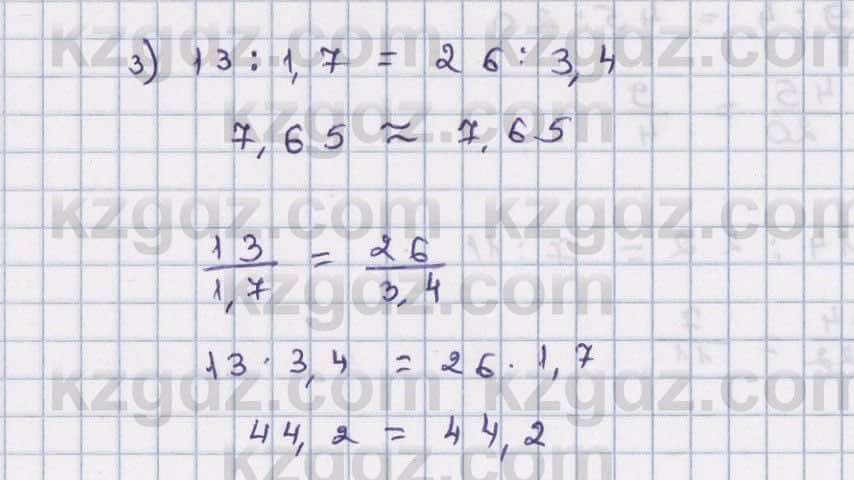 3) 13 : 1,7 = 26 : 3,4
7,65 ≈ 7,65
13/1,7 = 26/3,4
13 · 3,4 = 26 · 1,7
44,2 = 44,2
kzgdz.com kzgdz.com
kzgdz.com
kzgdz.com kzgdz.com
kzgdz.com
kzgdz.com kzgdz.com
kzgdz.com